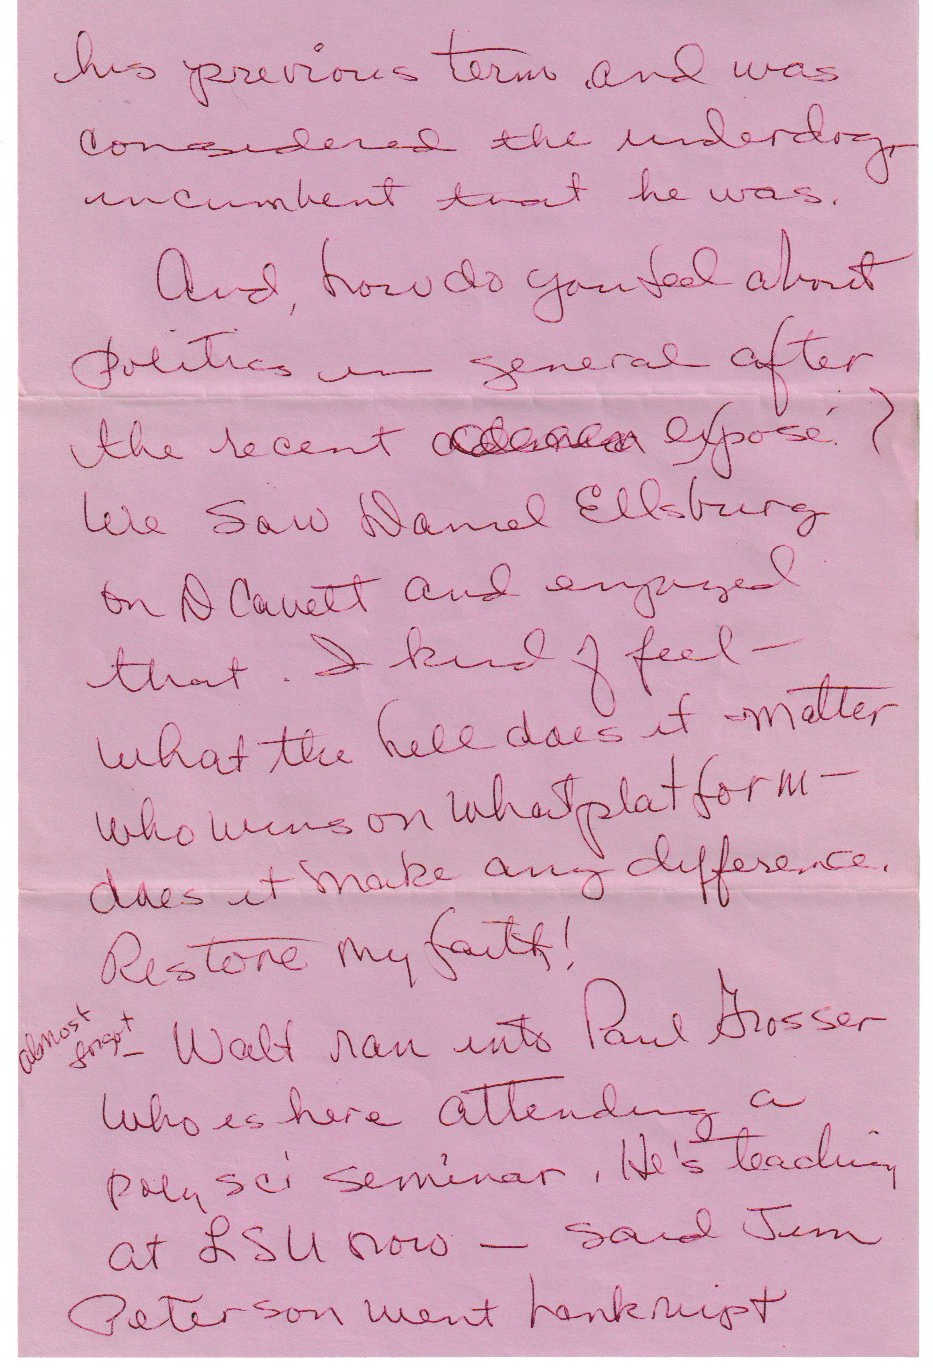 his previous term and was
considered the underdog
incumbent that he was.
And, how do you feel about
politics in general after
the recent exposé?
We saw Daniel Ellsburg
on D Cavett and enjoyed
that. I kind of feel –
what the hell does it matter
who wins on what platform –
does it make any difference.
Restore my faith!
almost
forgot – Walt ran into Paul Grosser
who is here attending a
poly sci seminar. He's teaching
at LSU now – said Jim
Peterson went bankrupt